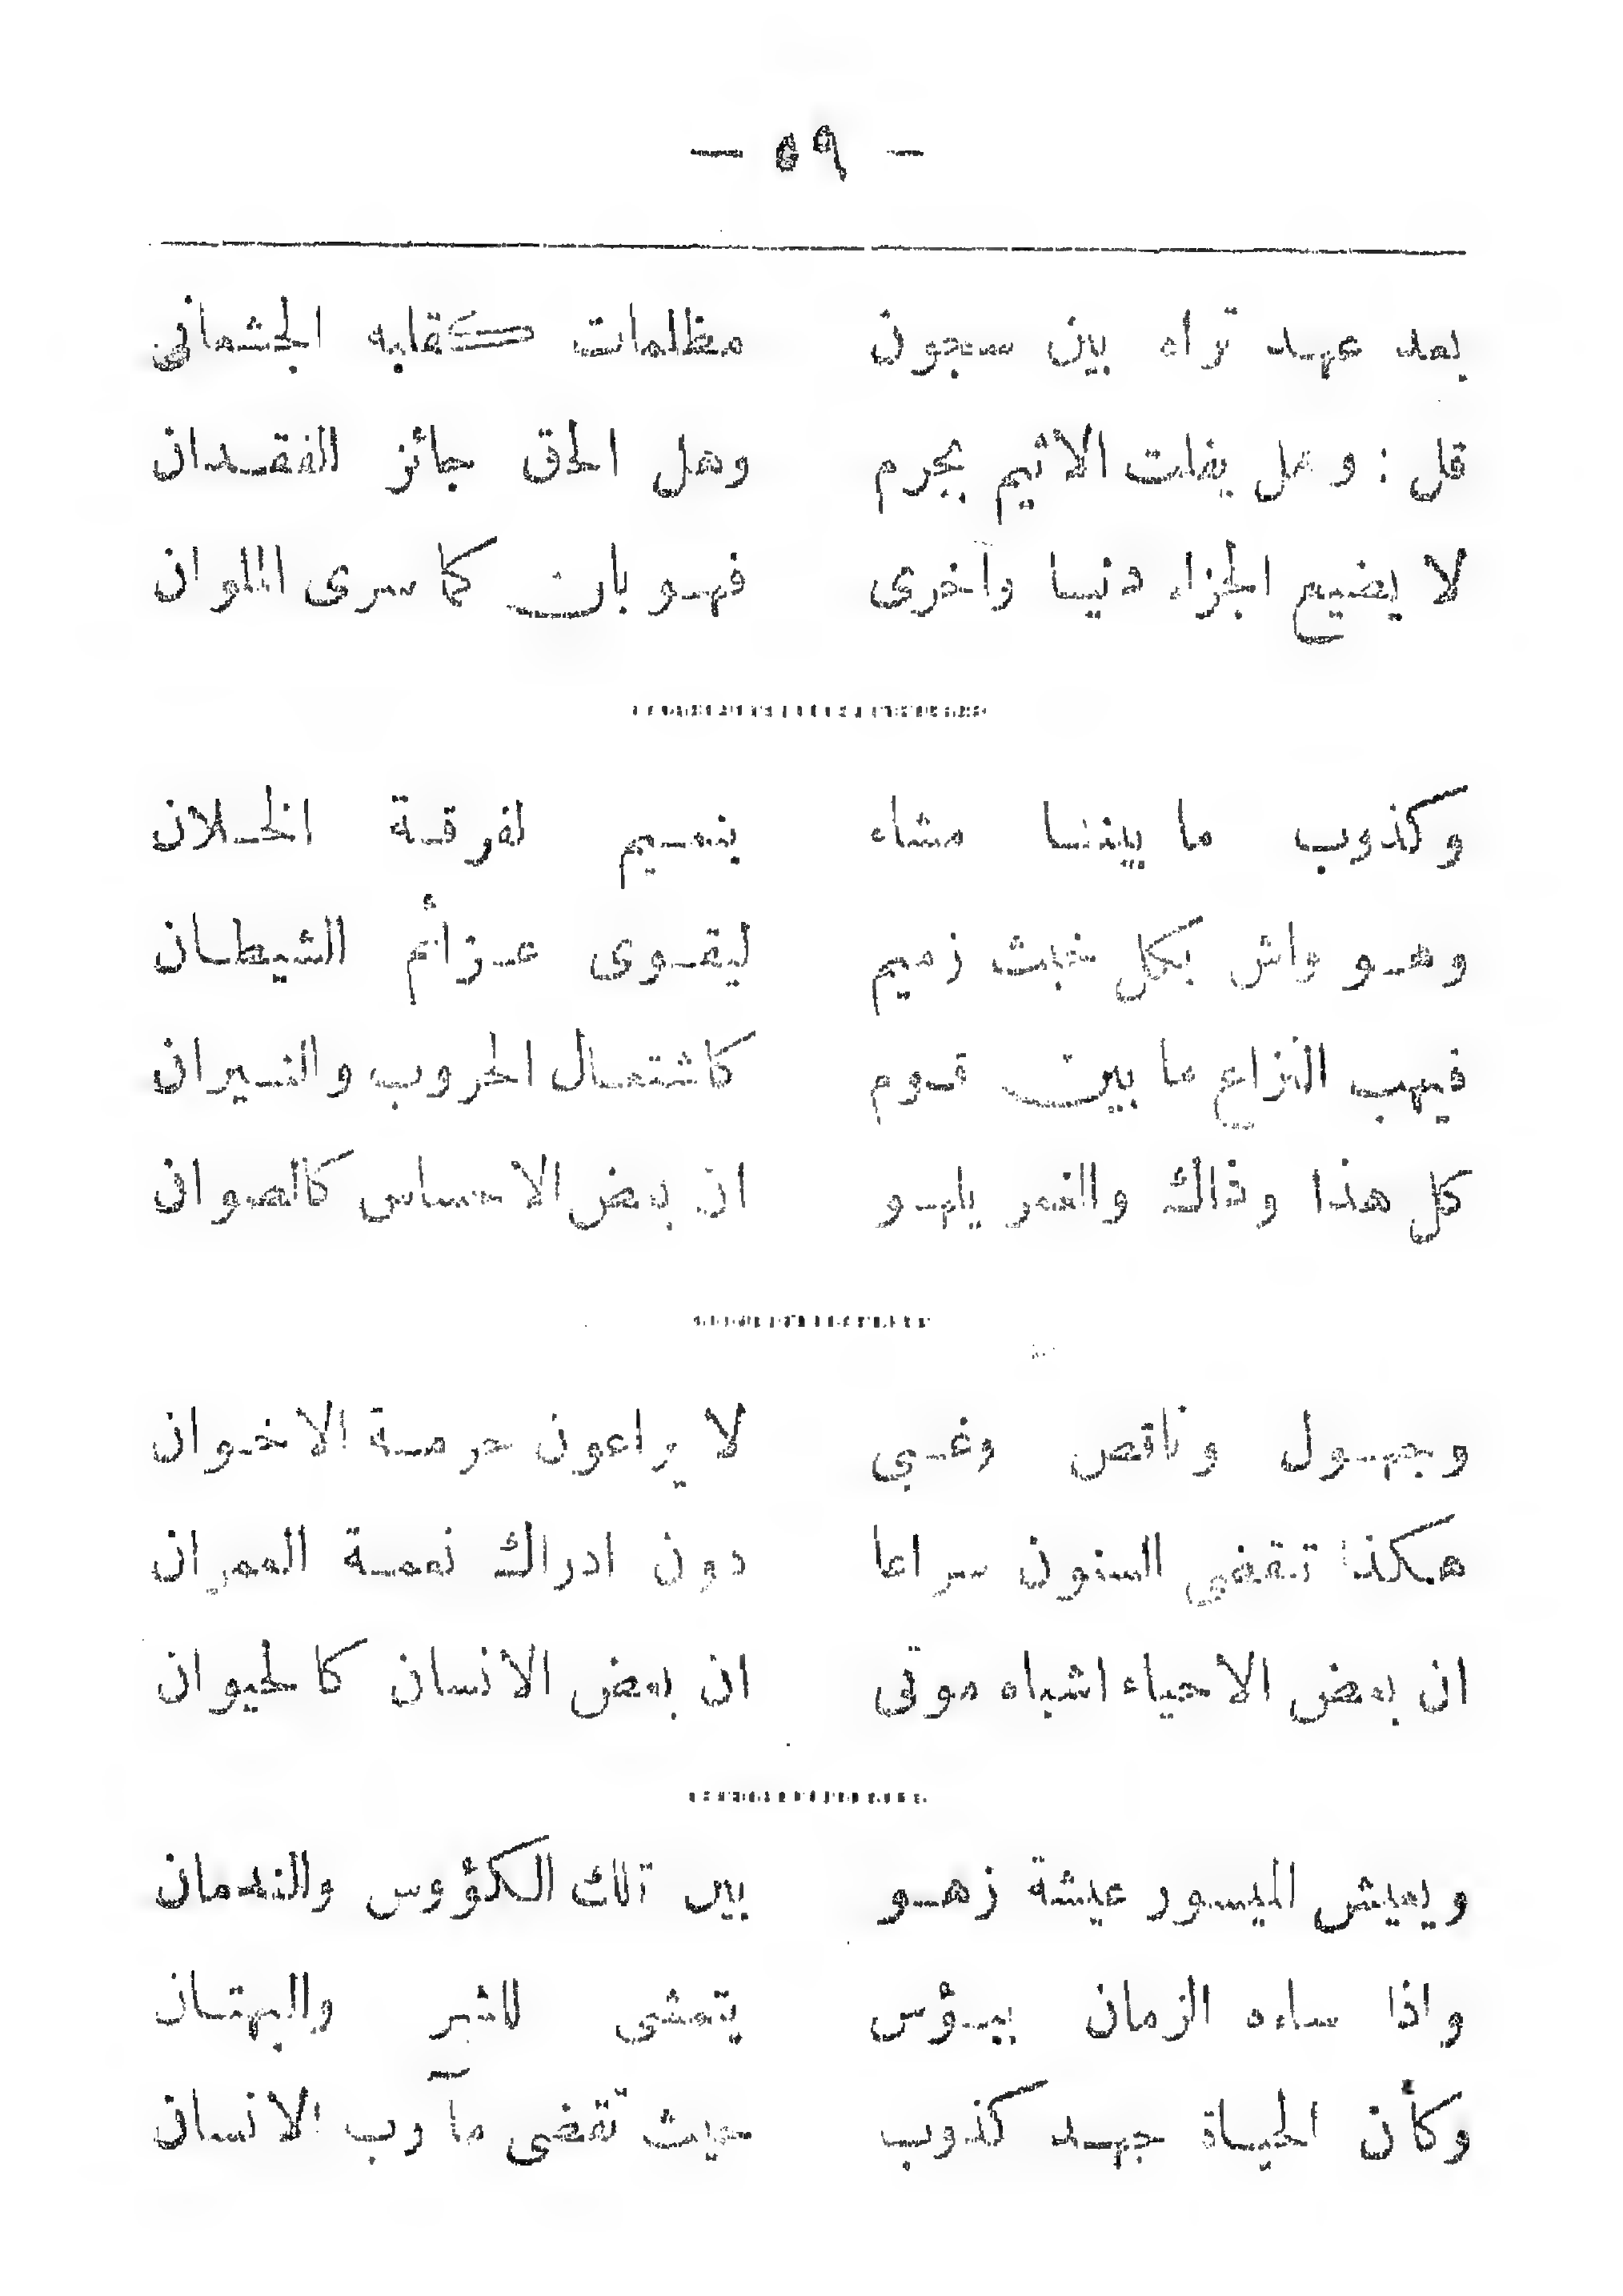 — ٥٩ —
بعد عهد تراه بين سجون مظلمات كقلبه الجثماني
قل : وهل يفلت الاثيم بجرم وهل الحق جائز الفقدان
لا يضيع الجزاء دنيا وآخرى فهو بان كما سرى الملوان
وكذوب ما بيننا مشاء بنميم لفرقة الخلان
وهو واش بكل خبث زميم ليقوى عزائم الشيطان
فيهب النزاع ما بين قوم كاشتعال الحروب والنيران
كل هذا وذاك والغمر يلهو ان بعض الاحساس كالصوان
وجهول وناقص وغبي لا يراعون حرمة الاخوان
هكذا تقضى السنون سراعا دون ادراك نعمة العمران
ان بعض الاحياء اشباه موتى ان بعض الانسان كالحيوان
ويعيش الميسور عيشة زهو بين تلك الكؤوس والندمان
واذا ساءه الزمان ببؤس يتمشى للشر والبهتان
وكأن الحياة جهد كذوب حيث تقضى مآرب الانسان